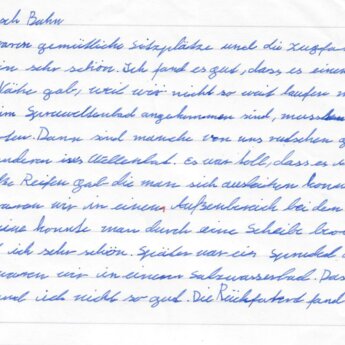 ach Bahn
waren gemütliche Sitzplätze und die Zugfa
in sehr schön. Ich fand es gut, dass es einen
Nähe gab, weil wir nicht so weit laufen m
im Spreeweltenbad angekommen sind, muss
Dann sind manche von uns rutschen g
anderen ins Wellenbad. Es war toll, dass es
Reifen gab die man sich ausleihen konn
waren wir in einem Außenbereich bei dem
konnte man durch eine Scheibe beo
ich sehr schön. Später war ein Sprudel
waren wir in einem Salzwasserbad. Das
and ich nicht so gut. Die Rückfahrt fand